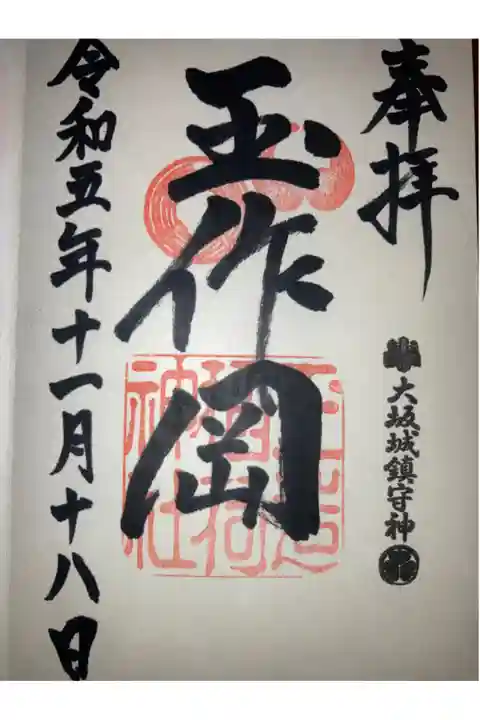 奉拝
大坂城鎮守神
玉作岡
玉造
稲荷
神社
令和五年十一月十八日